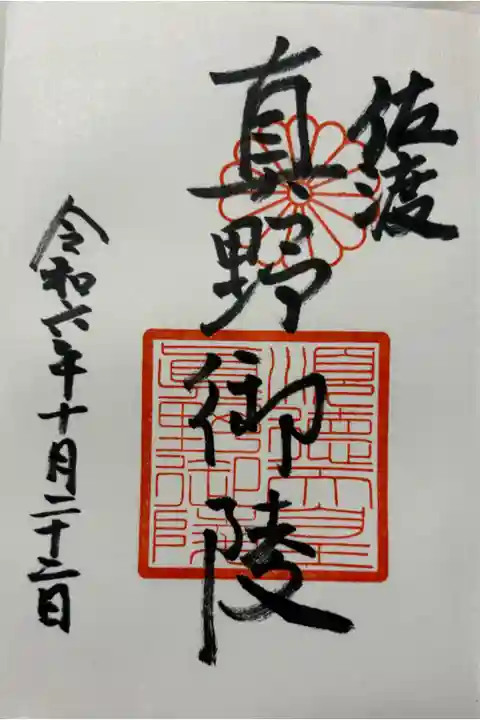 佐渡
真野御陵
令和六年十月二十三日